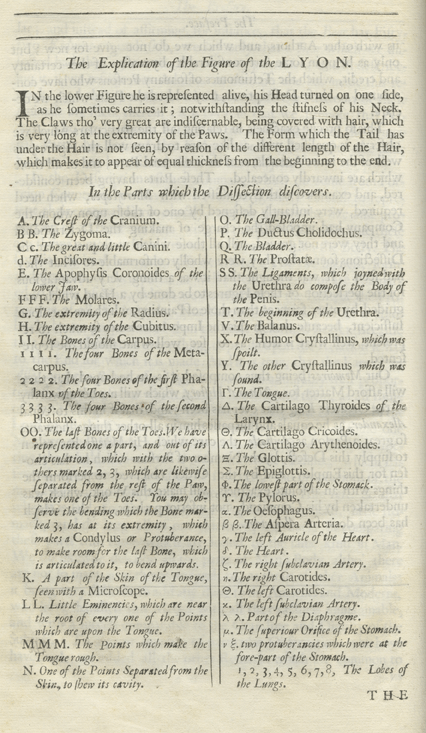 The Explication of the Figure of the LYON.
IN the lower Figure he is represented alive, his Head turned on one side,
as he ſometimes carries it; notwithſtanding the ſtifneſs of his Neck.
The Claws tho' very great are indiſcernable, being covered with hair, which
is very long at the extremity of the Paws. The Form which the Tail has
under the Hair is not ſeen, by reaſon of the different length of the Hair,
which makes it to appear of equal thickneſs from the beginning to the end.
In the Parts which the Diſſection diſcovers.
A. The Creſt of the Cranium.
B B. The Zygoma.
C c. The great and little Canini.
d. The Inciſores.
E. The Apophyſis Coronoides of the
lower Jaw.
F F F. The Molares.
G. The extremity of the Radius.
H. The extremity of the Cubitus.
I I. The Bones of the Carpus.
1 1 1 1. The four Bones of the Meta-
carpus.
2 2 2 2. The four Bones of the firſt Pha-
lanx of the Toes.
3 3 3 3. The four Bones of the ſecond
Phalanx.
OO. The laſt Bones of the Toes. We have
repreſented one a part, and out of its
articulation, which with the two o-
thers marked 2, 3, which are likewiſe
ſeparated from the reſt of the Paw,
makes one of the Toes. You may ob-
ſerve the bending which the Bone mar-
ked 3, has at its extremity, which
makes a Condylus or Protuberance,
to make room for the laſt Bone, which
is articulated to it, to bend upwards.
K. A part of the Skin of the Tongue,
ſeen with a Microſcope.
L L. Little Eminencies, which are near
the root of every one of the Points
which are upon the Tongue.
M M M. The Points which make the
Tongue rough.
N. One of the Points Separated from the
Skin, to ſhew its cavity.
O. The Gall-Bladder.
P. The Ductus Cholidochus.
Q. The Bladder.
R R. The Proſtatæ.
S S. The Ligaments, which joyned with
the Urethra do compoſe the Body of
the Penis.
T. The beginning of the Urethra.
V. The Balanus.
X. The Humor Cryſtallinus, which was
ſpoilt.
Y. The other Cryſtallinus which was
ſound.
Γ. The Tongue.
Δ. The Cartilago Thyroides of the
Larynx.
Θ. The Cartilago Cricoides.
Λ. The Cartilago Arythenoides.
Ξ. The Glottis.
Σ. The Epiglottis.
Φ. The loweſt part of the Stomack.
Υ. The Pylorus.
α. The Oeſophagus.
β β. The Aſpera Arteria.
γ. The left Auricle of the Heart.
δ. The Heart.
ζ. The right ſubclavian Artery.
η. The right Carotides.
Θ. The left Carotides.
κ. The left ſubclavian Artery.
λ λ. Part of the Diaphragme.
μ. The ſuperiour Orifice of the Stomach.
ν ξ. two protuberancies which were at the
fore-part of the Stomach.
1, 2, 3, 4, 5, 6, 7, 8, The Lobes of
the Lungs.
THE